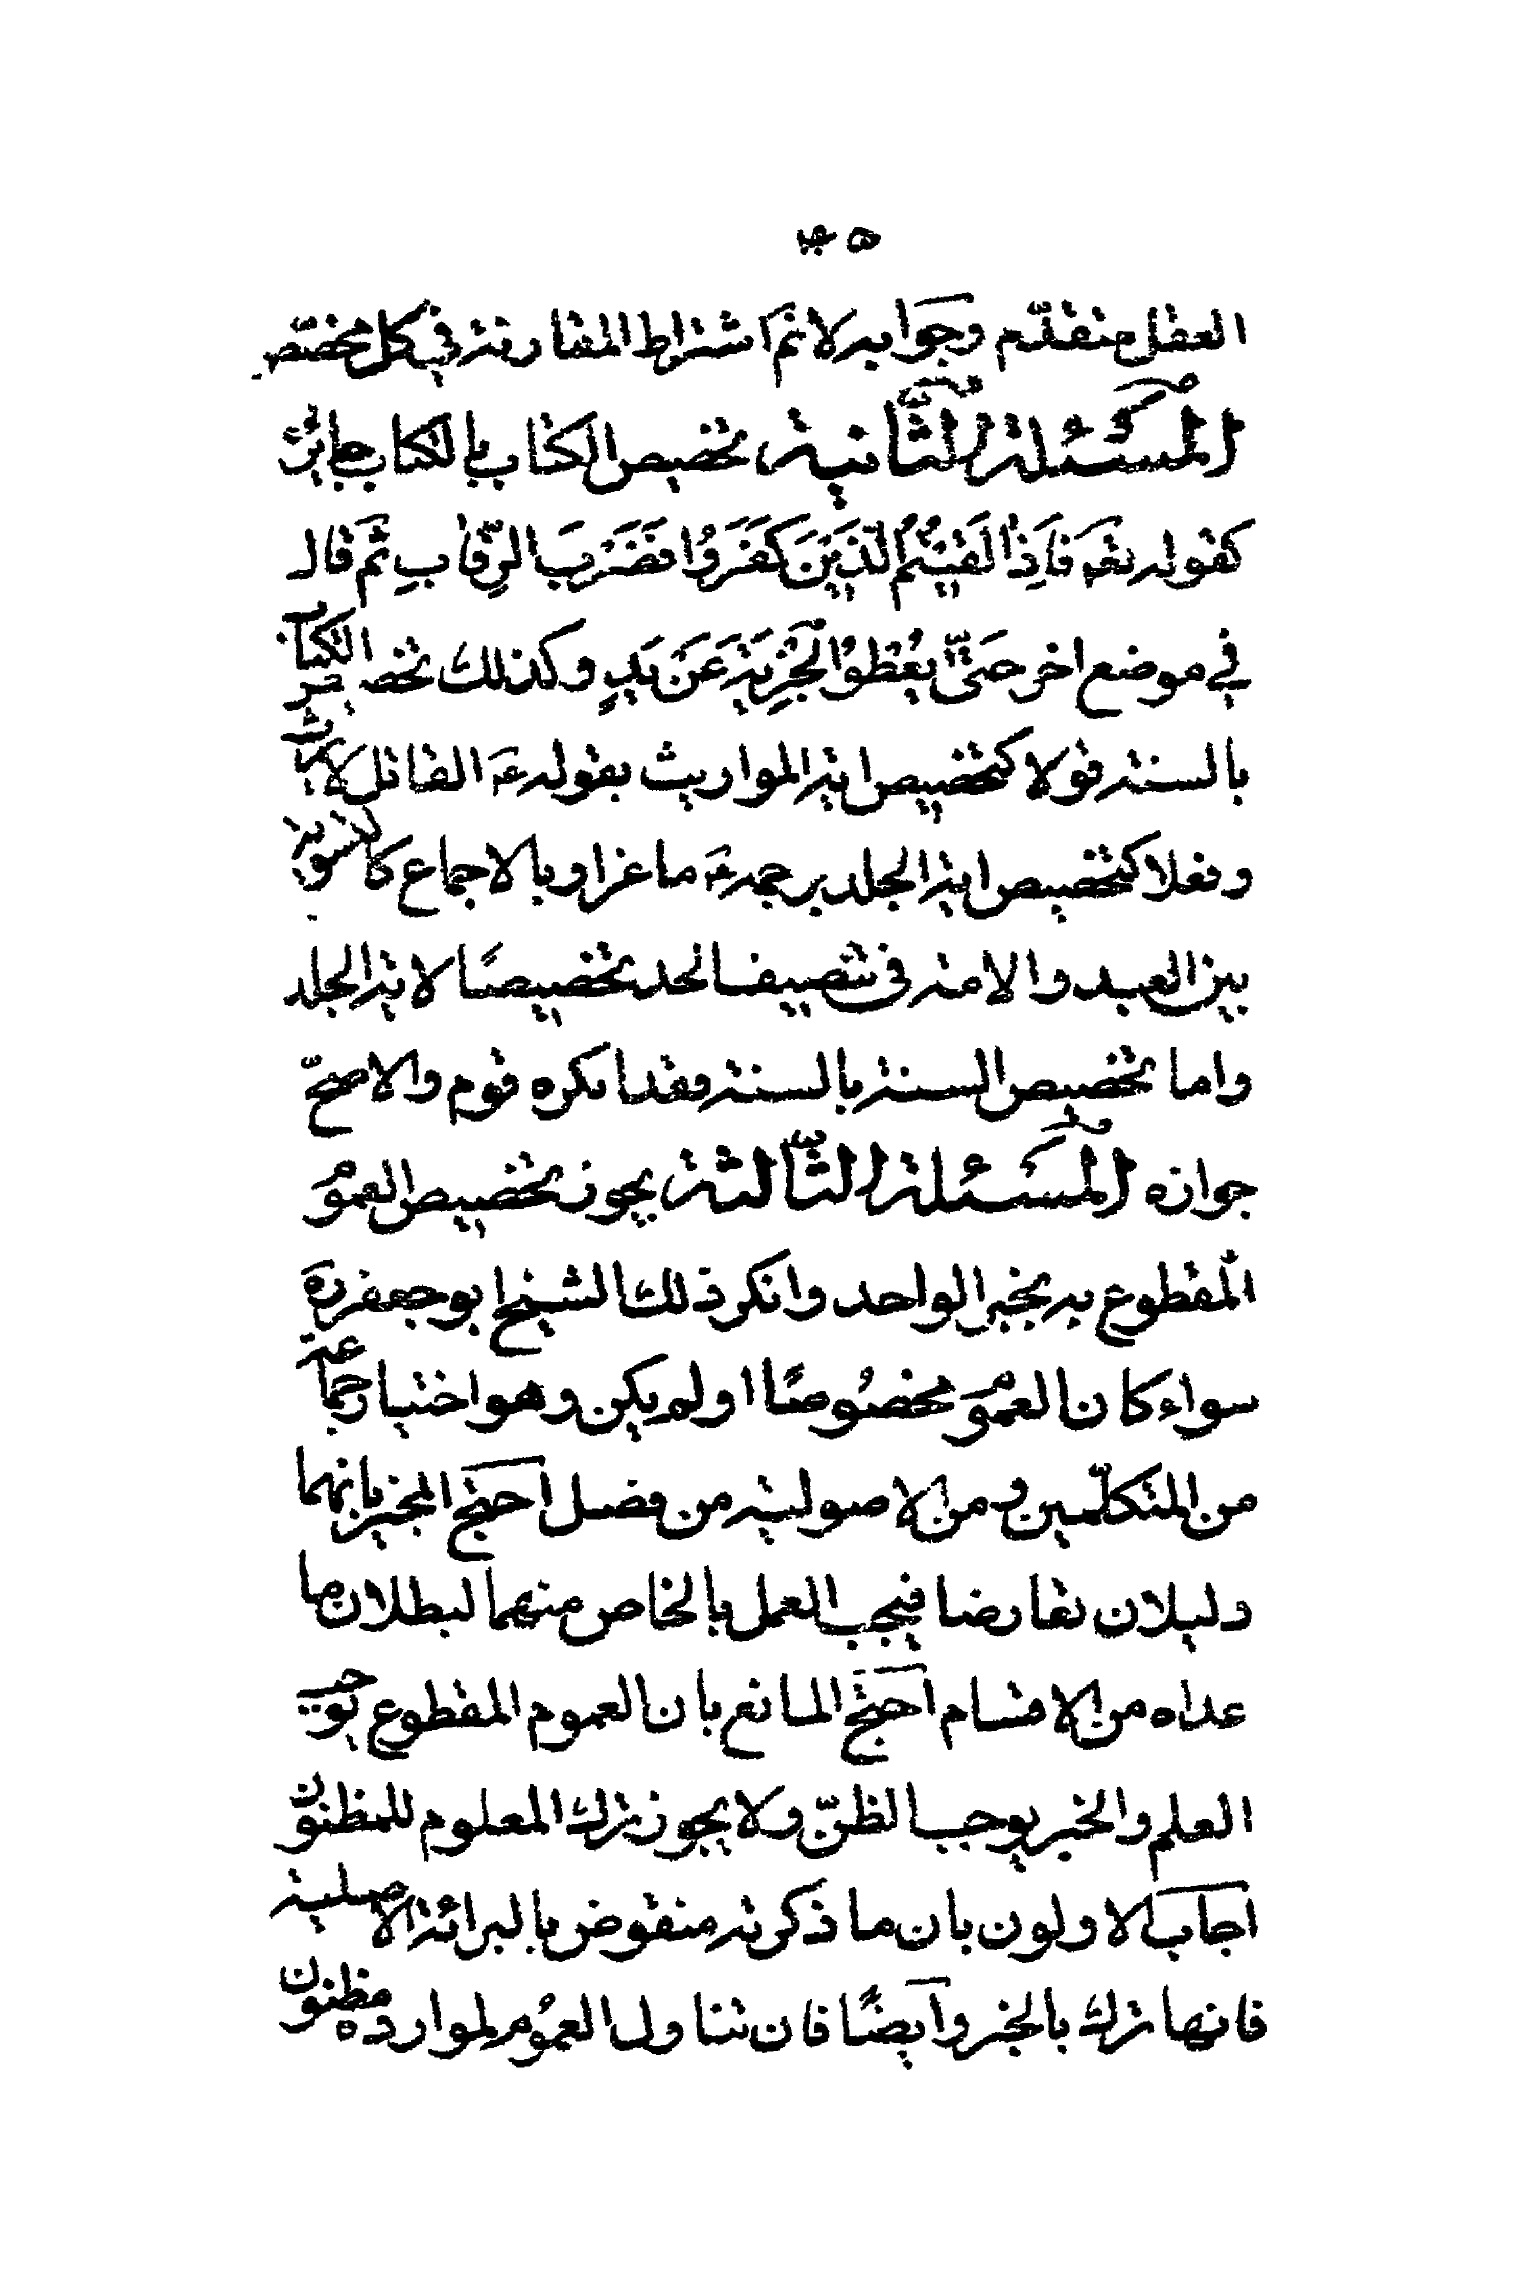 العقل متقدّم وجوابه لانم اشتراط المقارنة في كل مخصّص
المسئلة الثّانية تخصيص الكتاب بالكتاب جايز
كقوله تعه فَاِذا لَقيتُمُ الّذينَ كَفَرُوا فَضَرْبَ الرِّقابِ ثمّ قال
في موضع اخر حَتّى يُعْطُوا الْجِزْيَةَ عَنْ يَدٍ وكذلك تخصيص الكتاب
بالسنة قولا كتخصيص اية المواريث بقوله عَ القاتل لا يرث
وفعلا كتخصيص اية الجلد برجمه عَ ماعزا وبالاجماع كالتسوية
بين العبد والامة في تنصيف الحد تخصيصًا لاية الجلد
واما تخصيص السنة بالسنة فقد انكره قوم والاصحّ
جوازه المسئلة الثّالثة يجوز تخصيص العموم
المقطوع به بخبر الواحد وانكر ذلك الشيخ ابو جعفر ره
سواء كان العموم مخصُوصًا او لم يكن وهو اختيار جماعة
من المتكلّمين ومن الاصولية من فصل احتج المجيز بانهما
دليلان تعارضا فيجب العمل بالخاص منهما لبطلان ما
عداه من الاقسام احتج المانع بان العموم المقطوع يوجب
العلم والخبر يوجب الظنّ ولا يجوز ترك المعلوم للمظنون
اجاب الاولون بان ما ذكرته منقوض بالبرائة الاصلية
فانها تترك بالخبر وايضًا فان تناول العمُوم لموارده مظنون